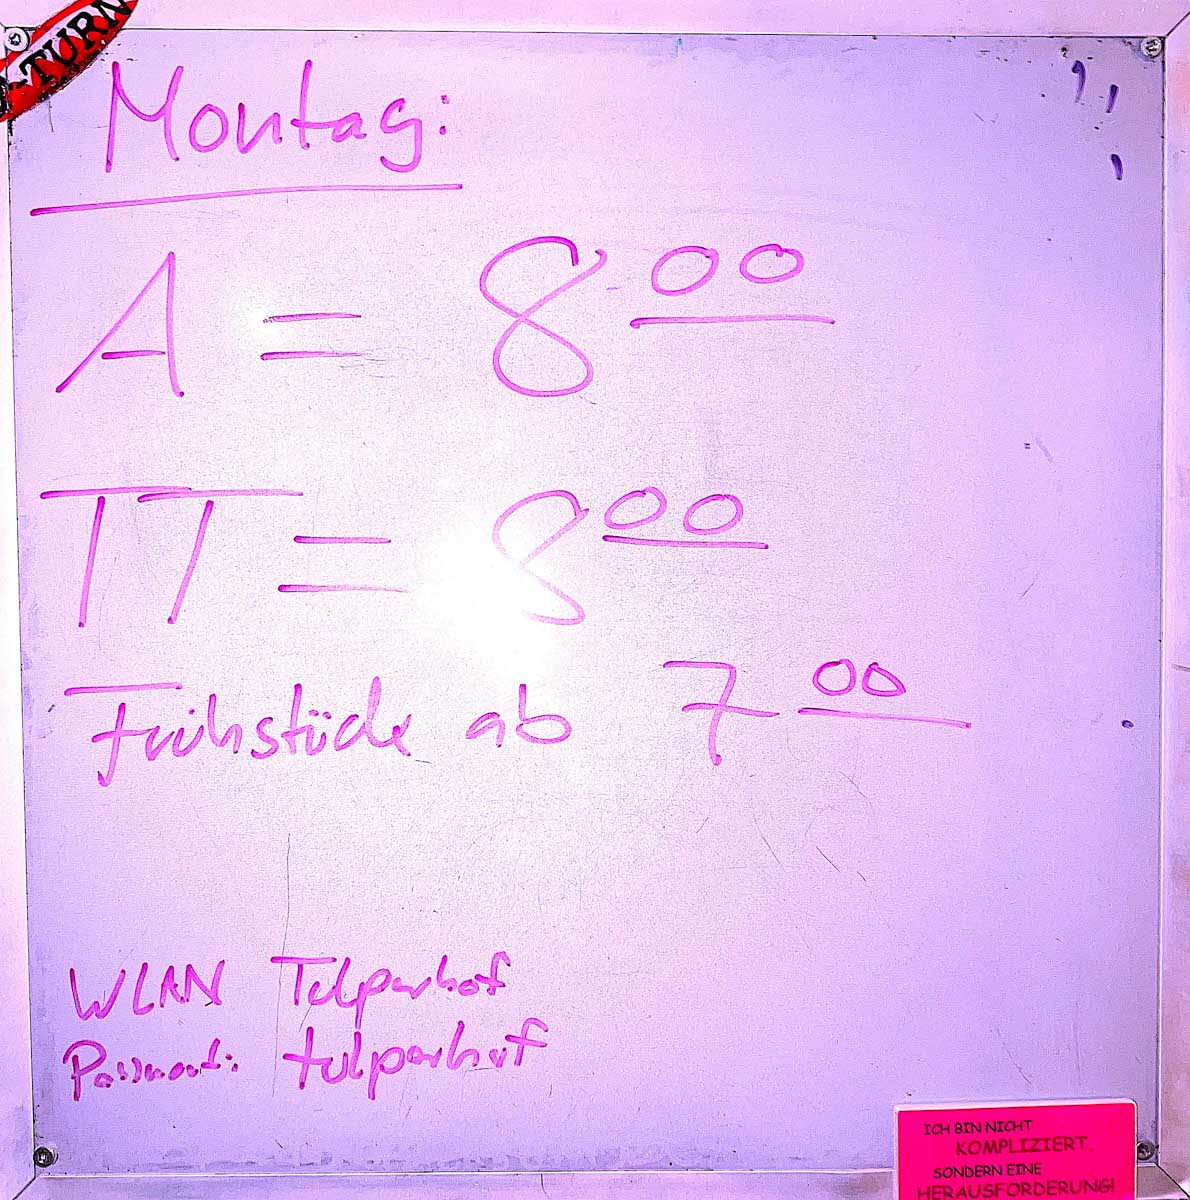 -TURN
Montag:
A = 8 00
TT = 8 00
Frühstück ab 7 00
WLAN Tulperhof
Passwort: tulperhof
ICH BIN NICHT
KOMPLIZIERT,
SONDERN EINE
HERAUSFORDERUNG!